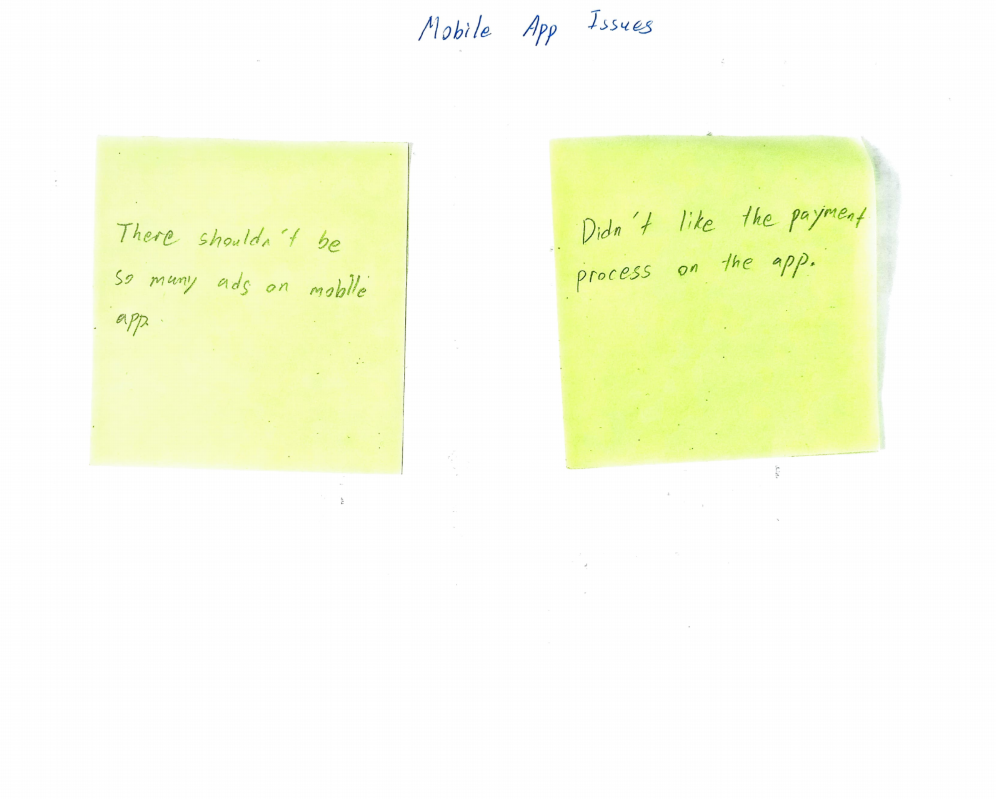 Mobile App Issues
There shouldn't be
so many ads on mobile
app.
Didn't like the payment
process on the app.